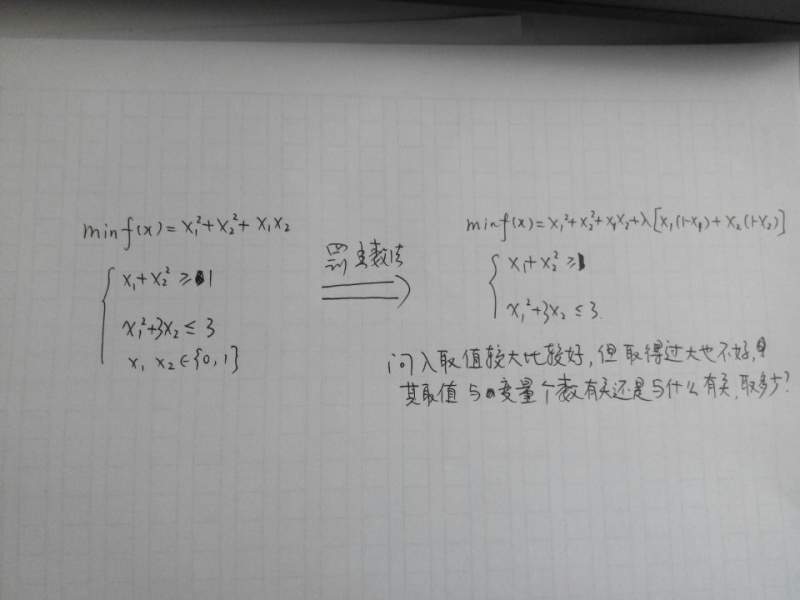 min f(x) = x₁² + x₂² + x₁x₂
x₁ + x₂² ≥ 1
x₁² + 3x₂ ≤ 3
x₁ x₂ ∈ {0, 1}
罚函数法
min f(x) = x₁² + x₂² + x₁x₂ + λ[x₁(1-x₁) + x₂(1-x₂)]
x₁ + x₂² ≥ 1
x₁² + 3x₂ ≤ 3.
问入取值较大比较好,但取得过大也不好,
其取值与变量个数有关还是与什么有关,取多少?